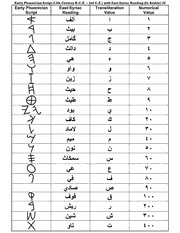 Early Phoenician Script (12th Century B.C.E. - 2nd C.E.) with East-Syriac Reading (in Arabic)
Early Phoenician Script East-Syriac Reading Transliteration Value Numerical Value
ا ألف ١
ب بيث ٢
ج گامل ٣
د دالث ٤
ه ٥
و واو ٦
ز زين ٧
ح حيث ٨
ط طيث ٩
ي ١٠
ك كاف ٢٠
ل لامد ٣٠
م ميم ٤٠
ن نون ٥٠
س سمكاث ٦٠
ع عي ٧٠
ف ٨٠
ص صادي ٩٠
ق قوف ١٠٠
ر ريش ٢٠٠
ش شين ٣٠٠
ت تاو ٤٠٠